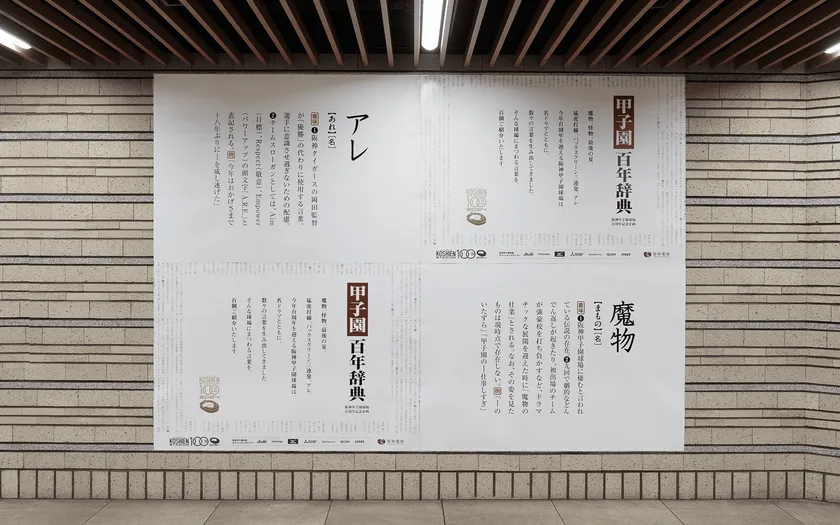 アレ
【あれ】[名]
趣味 ❶阪神タイガースの岡田監督
が、「優勝」の代わりに使用する言葉。
選手に意識させ過ぎないための配慮。
❷チームスローガンとしては、Aim
（目標）、Respect（敬意）、Empower
（パワーアップ）の頭文字「A.R.E.」の
表記される。例「今年はおかげさまで
十八年ぶりに―を成し遂げた」
甲子園 百年辞典
阪神甲子園球場
百周年記念企画
魔物、怪物、最後の夏、
猛虎打線、バックスクリーン三連発、アレ
今年百周年を迎える阪神甲子園球場は、
名ドラマとともに、
数々の言葉を生み出してきました。
そんな球場にまつわる言葉を、
百個ご紹介いたします。
KOSHIEN 100
甲子園 百年辞典
阪神甲子園球場
百周年記念企画
魔物、怪物、最後の夏、
猛虎打線、バックスクリーン三連発、アレ
今年百周年を迎える阪神甲子園球場は、
名ドラマとともに、
数々の言葉を生み出してきました。
そんな球場にまつわる言葉を、
百個ご紹介いたします。
KOSHIEN 100
魔物
【まもの】[名]
❶阪神甲子園球場に棲むと言われ
ている伝説の存在。❷九回で劇的などん
でん返しが起きたり、初出場のチーム
が強豪校を打ち負かすなど、ドラマ
チックな展開を迎えた時に「魔物の
仕業」とされる。なお、その姿を見た
ものは現時点で存在しない。例「―の
いたずら」「甲子園の―仕事しすぎ」